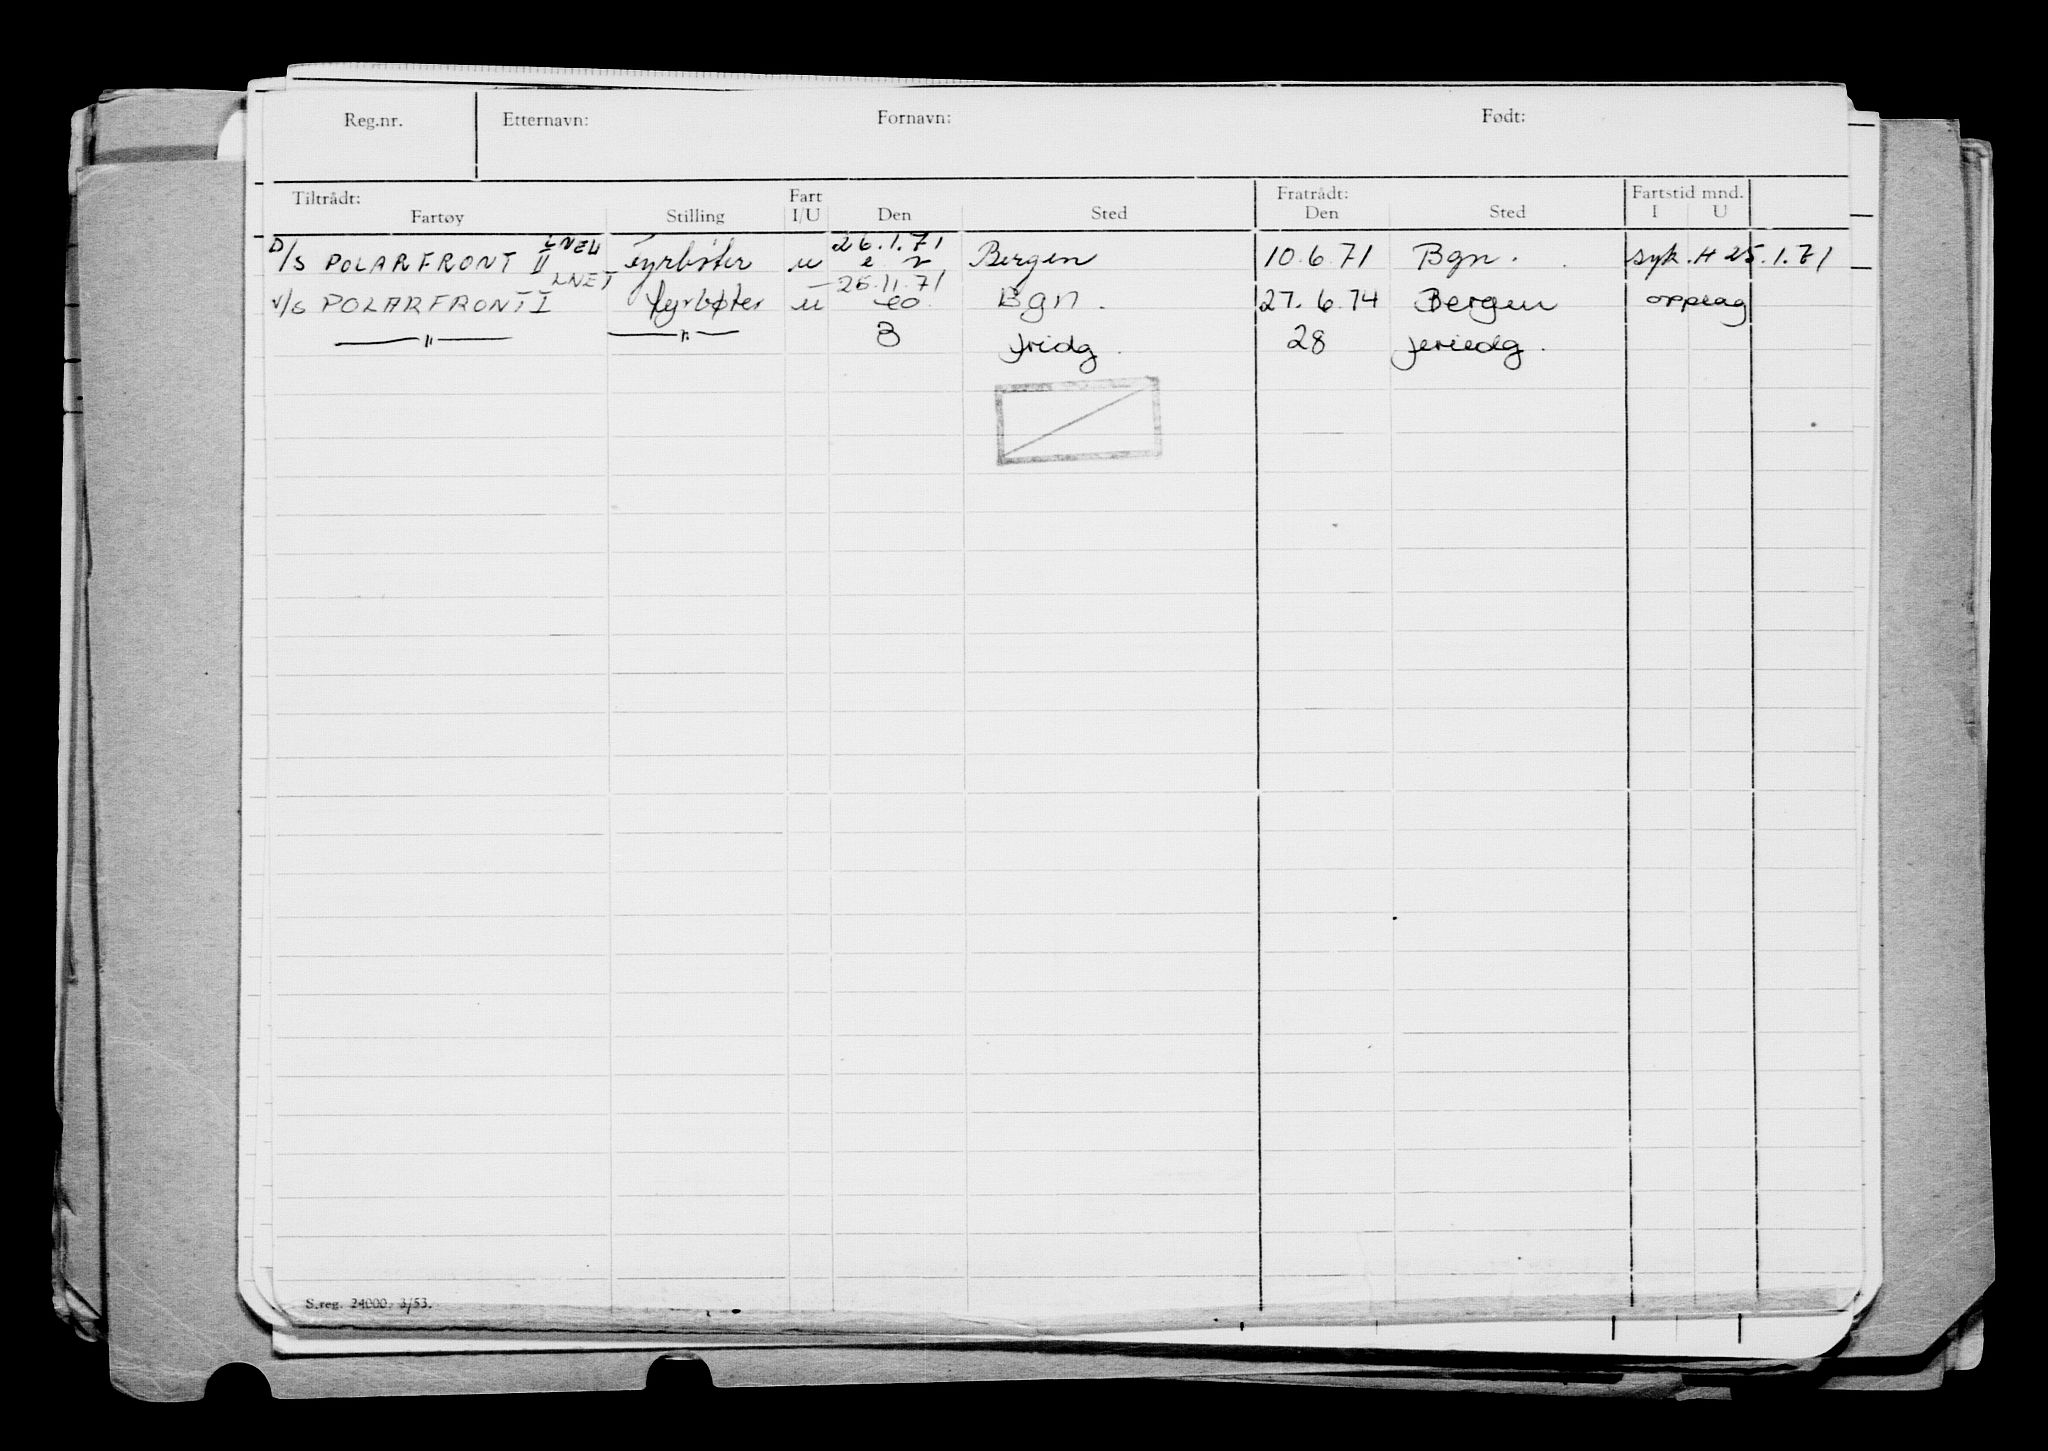 Reg.nr. Etternavn: Fornavn: Født:
Tiltrådt: Fart Fratrådt: Fartstid mnd.
Fartøy Stilling I/U Den Sted Den Sted I U
D/S POLARFRONT II Fyrbøter u 26.1.71 Bergen 10.6.71 Bgn. syk. H 25.1.71
LNET
V/S POLARFRONT I fyrbøter u 26.11.71 Bgn. 27.6.74 Bergen opplag
—"— —"— 3 fridg. 28 feriedg.
S.reg. 24000. 3/53.